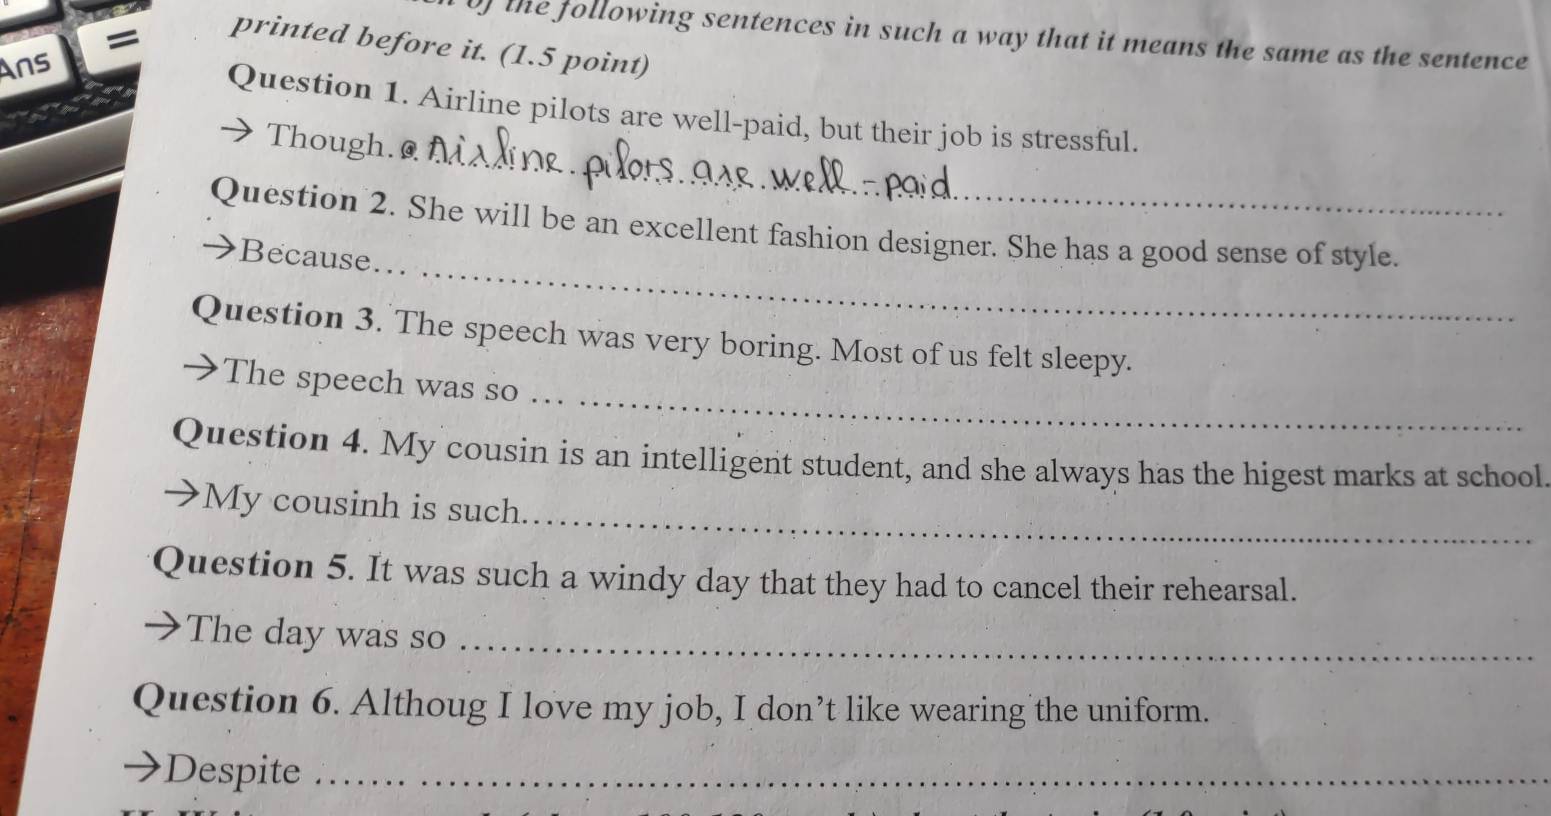 Ans =
of the following sentences in such a way that it means the same as the sentence
printed before it. (1.5 point)
Question 1. Airline pilots are well-paid, but their job is stressful.
→ Though. Airline pilots are well-paid
Question 2. She will be an excellent fashion designer. She has a good sense of style.
→Because... ..........
Question 3. The speech was very boring. Most of us felt sleepy.
→The speech was so ... ..........
Question 4. My cousin is an intelligent student, and she always has the higest marks at school.
→My cousinh is such..........
Question 5. It was such a windy day that they had to cancel their rehearsal.
→The day was so ..........
Question 6. Althoug I love my job, I don't like wearing the uniform.
→Despite ....... ..........